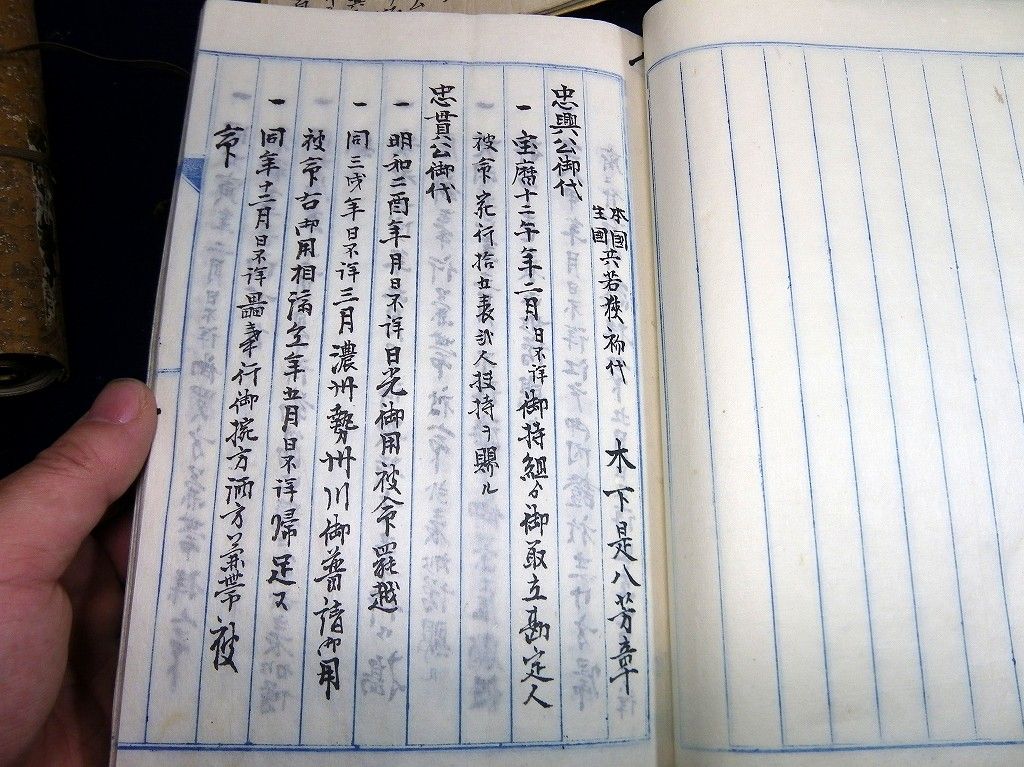 本国
生国 共若狭 初代 木下是八芳章
忠興公御代
一 宝暦十二午年二月日不詳御持組ゟ御取立勘定人
被命宛行拾五表弐人扶持ヲ賜ル
忠貫公御代
一 明和二酉年月日不詳日光御用被命罷越
一 同三戌年日不詳三月濃州勢州川御普請御用
被命右御用相済立年五月日不詳帰足ス
一 同年十二月日不詳 奉行御椀方酒方兼帯被
命